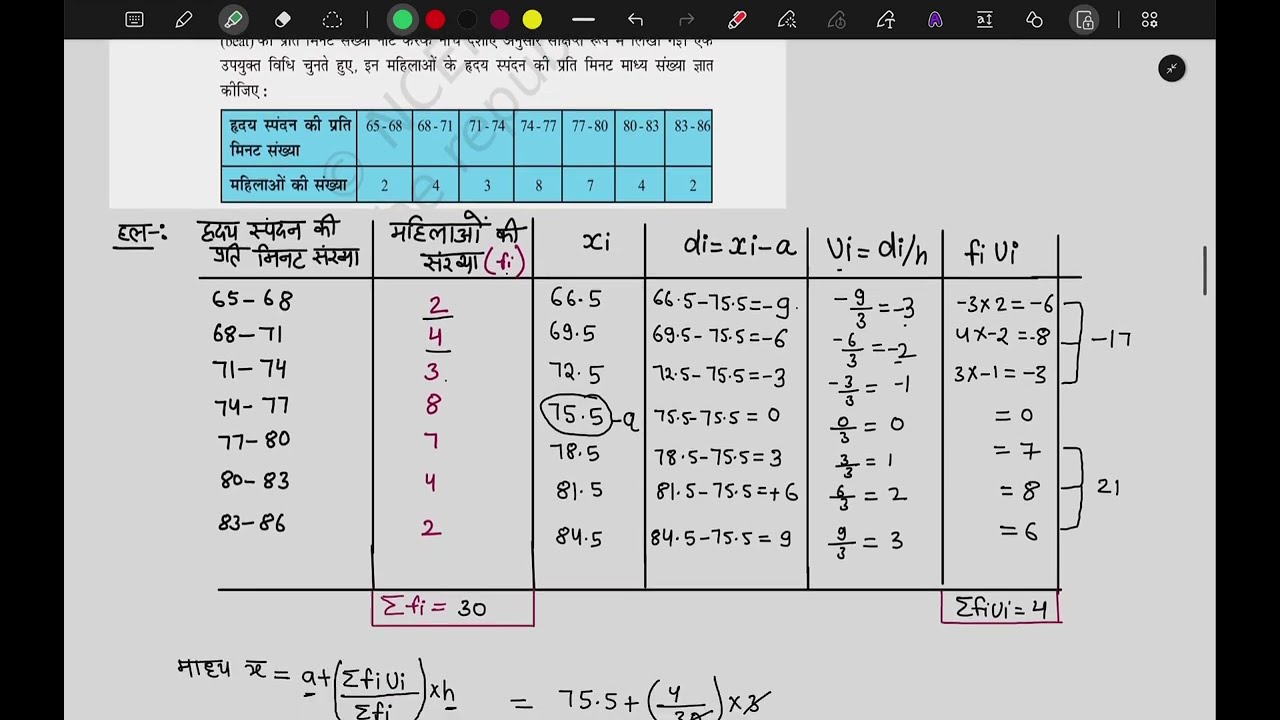 (beat) की प्रति मिनट संख्या नोट करके नीचे दर्शाए अनुसार संक्षिप्त रूप में लिखी गई। एक
उपयुक्त विधि चुनते हुए, इन महिलाओं के हृदय स्पंदन की प्रति मिनट माध्य संख्या ज्ञात
कीजिए :
हृदय स्पंदन की प्रति मिनट संख्या 65-68 68-71 71-74 74-77 77-80 80-83 83-86
महिलाओं की संख्या 2 4 3 8 7 4 2
हल-: हृदय स्पंदन की प्रति मिनट संख्या महिलाओं की संख्या (fi) xi di=xi-a Ui=di/h fi Ui
65-68 2 66.5 66.5-75.5=-9 -9/3=-3 -3×2=-6
68-71 4 69.5 69.5-75.5=-6 -6/3=-2 4×-2=-8 -17
71-74 3 72.5 72.5-75.5=-3 -3/3=-1 3×-1=-3
74-77 8 75.5-a 75.5-75.5=0 0/3=0 =0
77-80 7 78.5 78.5-75.5=3 3/3=1 =7
80-83 4 81.5 81.5-75.5=+6 6/3=2 =8 21
83-86 2 84.5 84.5-75.5=9 9/3=3 =6
Σfi=30 ΣfiUi=4
माध्य x̄=a+(ΣfiUi/Σfi)×h = 75.5+(4/30)×3